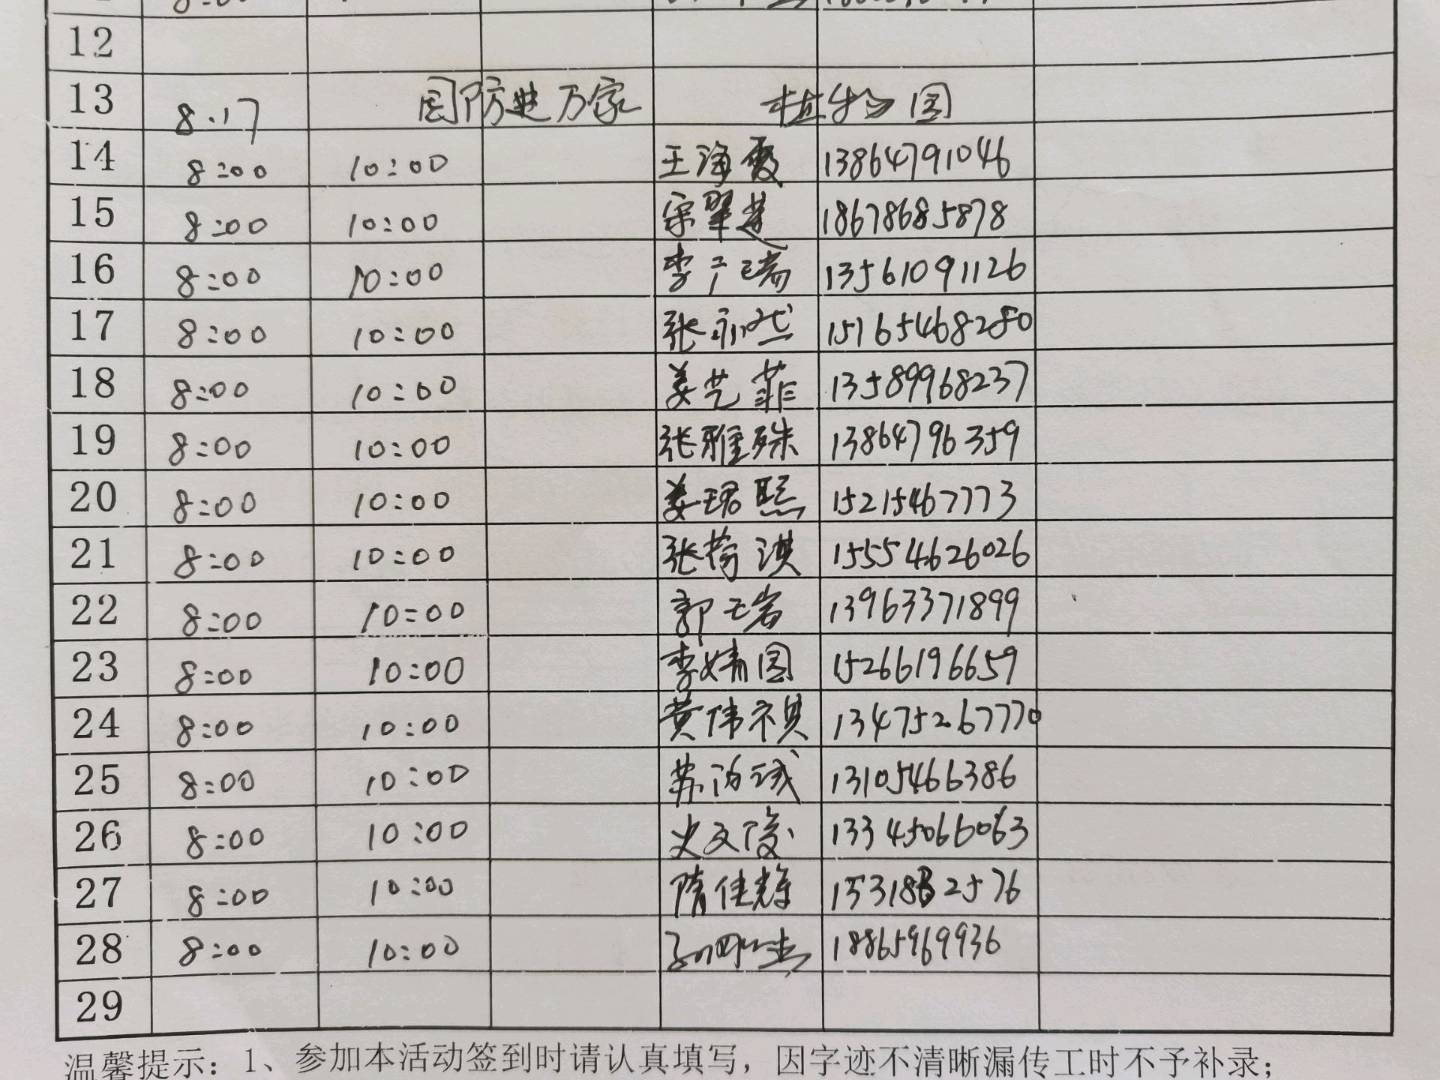 12
13 8.17 国防进万家 植物园
14 8:00 10:00 王海霞 13864791046
15 8:00 10:00 宋翠莲 18678685878
16 8:00 10:00 李广瑞 13561091126
17 8:00 10:00 张 15165468280
18 8:00 10:00 姜艺菲 13589968237
19 8:00 10:00 张雅殊 13864796359
20 8:00 10:00 姜珺熙 15215467773
21 8:00 10:00 张荷淇 15554626026
22 8:00 10:00 郭玉岩 13963371899
23 8:00 10:00 李婧图 15266196659
24 8:00 10:00 黄伟祺 13475267770
25 8:00 10:00 苏泊诚 13105466386
26 8:00 10:00 史文俊 13345066063
27 8:00 10:00 隋佳臻 1531832576
28 8:00 10:00 18865969936
29
温馨提示：1、参加本活动签到时请认真填写，因字迹不清晰漏传工时不予补录；